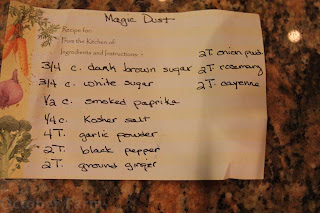 Magic Dust
Recipe for:
From the Kitchen of
Ingredients and Instructions
3/4 c. dark brown sugar
3/4 c. white sugar
1/2 c. smoked paprika
1/4 c. Kosher salt
4T. garlic powder
2T. black pepper
2T. ground ginger
2T. onion pwd.
2T. rosemary
2T. cayenne